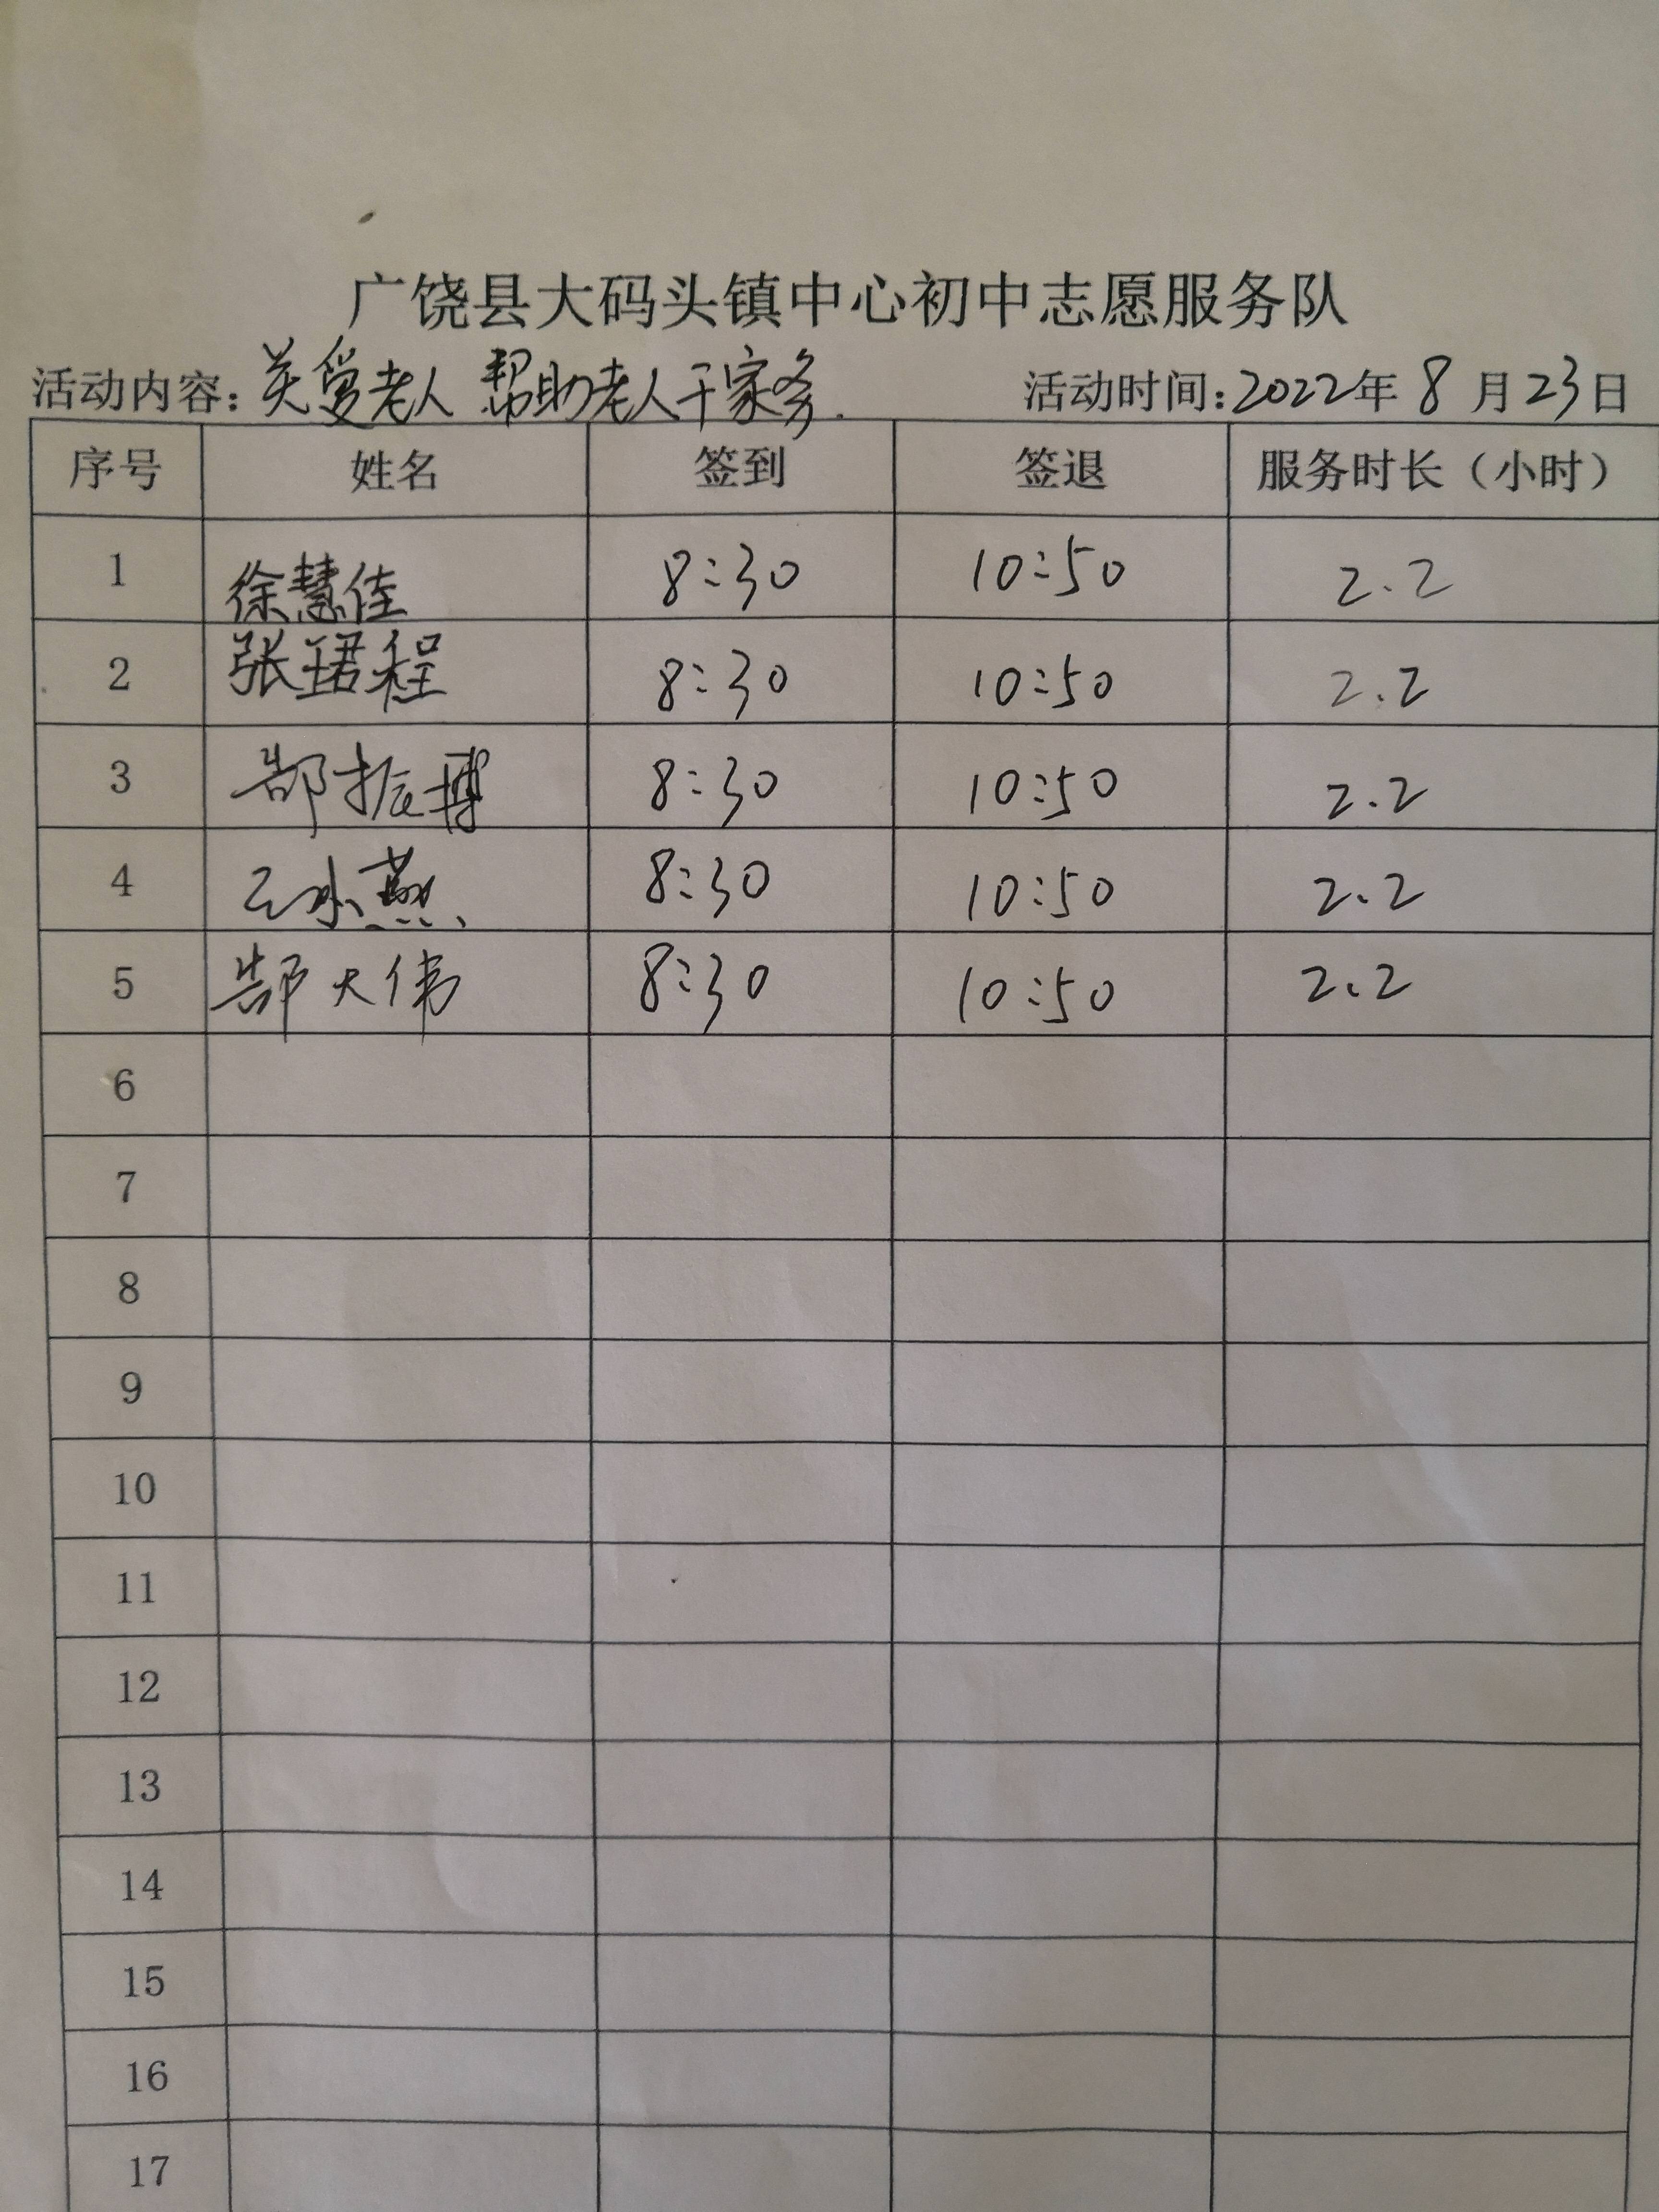 广饶县大码头镇中心初中志愿服务队
活动内容：关爱老人 帮助老人干家务. 活动时间：2022年8月23日
序号 姓名 签到 签退 服务时长（小时）
1 徐慧佳 8:30 10:50 2.2
2 张珺程 8:30 10:50 2.2
3 郜振博 8:30 10:50 2.2
4 8:30 10:50 2.2
5 郜大伟 8:30 10:50 2.2
6
7
8
9
10
11
12
13
14
15
16
17